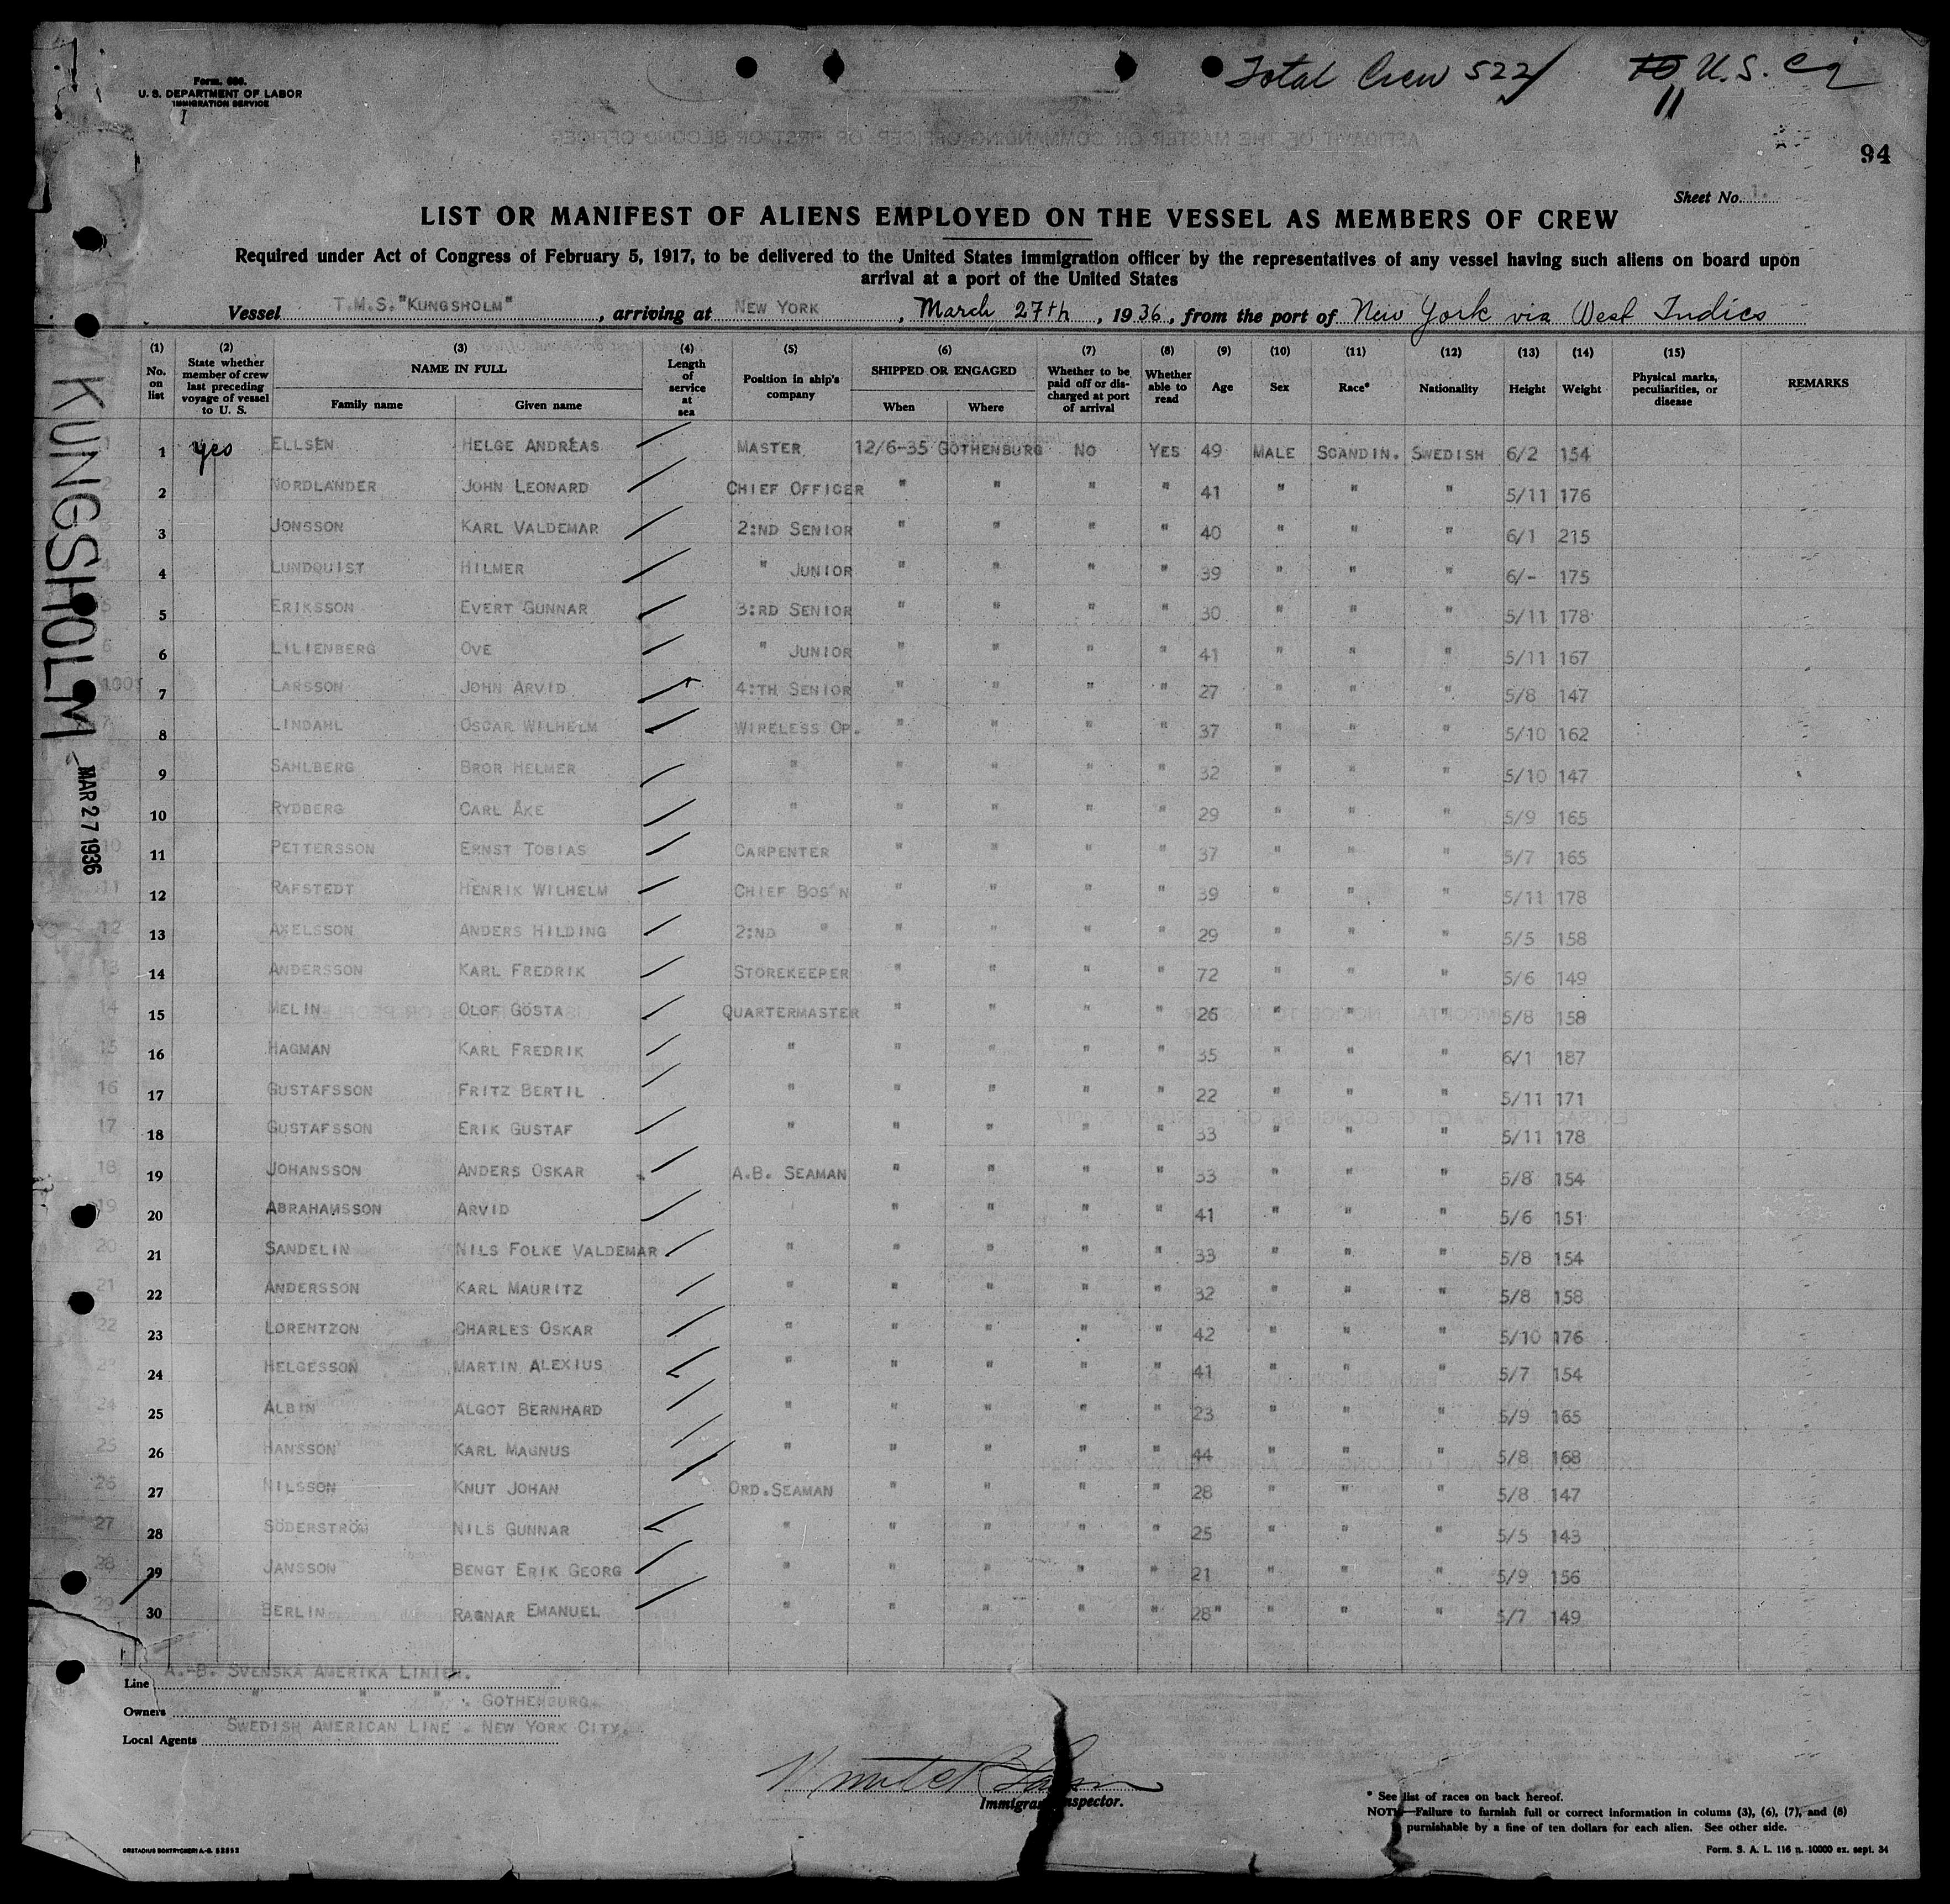 Form. 686.
U. S. DEPARTMENT OF LABOR
IMMIGRATION SERVICE
Total Crew 522
10 U.S. Cq
11
94
Sheet No. 1.
LIST OR MANIFEST OF ALIENS EMPLOYED ON THE VESSEL AS MEMBERS OF CREW
Required under Act of Congress of February 5, 1917, to be delivered to the United States immigration officer by the representatives of any vessel having such aliens on board upon
arrival at a port of the United States
Vessel T.M.S. "KUNGSHOLM", arriving at NEW YORK, March 27th, 1936, from the port of New York via West Indies
(1) No. on list (2) State whether member of crew last preceding voyage of vessel to U. S. (3) NAME IN FULL Family name Given name (4) Length of service at sea (5) Position in ship's company (6) SHIPPED OR ENGAGED When Where (7) Whether to be paid off or discharged at port of arrival (8) Whether able to read (9) Age (10) Sex (11) Race* (12) Nationality (13) Height (14) Weight (15) Physical marks, peculiarities, or disease REMARKS
1 yes ELLSEN HELGE ANDREAS MASTER 12/6-35 GOTHENBURG NO YES 49 MALE SCANDIN. SWEDISH 6/2 154
2 NORDLANDER JOHN LEONARD CHIEF OFFICER " " " " 41 " " " 5/11 176
3 JONSSON KARL VALDEMAR 2:ND SENIOR " " " " 40 " " " 6/1 215
4 LUNDQUIST HILMER " JUNIOR " " " " 39 " " " 6/- 175
5 ERIKSSON EVERT GUNNAR 3:RD SENIOR " " " " 30 " " " 5/11 178
6 LILIENBERG OVE " JUNIOR " " " " 41 " " " 5/11 167
7 LARSSON JOHN ARVID 4:TH SENIOR " " " " 27 " " " 5/8 147
8 LINDAHL OSCAR WILHELM WIRELESS OP. " " " " 37 " " " 5/10 162
9 SAHLBERG BROR HELMER " " " " " 32 " " " 5/10 147
10 RYDBERG CARL ÅKE " " " " " 29 " " " 5/9 165
11 PETTERSSON ERNST TOBIAS CARPENTER " " " " 37 " " " 5/7 165
12 RAFSTEDT HENRIK WILHELM CHIEF BOS'N " " " " 39 " " " 5/11 178
13 AXELSSON ANDERS HILDING 2:ND " " " " " 29 " " " 5/5 158
14 ANDERSSON KARL FREDRIK STOREKEEPER " " " " 72 " " " 5/6 149
15 MELIN OLOF GÖSTA QUARTERMASTER " " " " 26 " " " 5/8 158
16 HAGMAN KARL FREDRIK " " " " " 35 " " " 6/1 187
17 GUSTAFSSON FRITZ BERTIL " " " " " 22 " " " 5/11 171
18 GUSTAFSSON ERIK GUSTAF " " " " " 33 " " " 5/11 178
19 JOHANSSON ANDERS OSKAR A.B. SEAMAN " " " " 33 " " " 5/8 154
20 ABRAHAMSSON ARVID " " " " 41 " " " 5/6 151
21 SANDELIN NILS FOLKE VALDEMAR " " " " " 33 " " " 5/8 154
22 ANDERSSON KARL MAURITZ " " " " " 32 " " " 5/8 158
23 LORENTZON CHARLES OSKAR " " " " " 42 " " " 5/10 176
24 HELGESSON MARTIN ALEXIUS " " " " " 41 " " " 5/7 154
25 ALBIN ALGOT BERNHARD " " " " " 23 " " " 5/9 165
26 HANSSON KARL MAGNUS " " " " " 44 " " " 5/8 168
27 NILSSON KNUT JOHAN ORD.SEAMAN " " " " 28 " " " 5/8 147
28 SÖDERSTRÖM NILS GUNNAR " " " " " 25 " " " 5/5 143
29 JANSSON BENGT ERIK GEORG " " " " " 21 " " " 5/9 156
30 BERLIN RAGNAR EMANUEL " " " " " 28 " " " 5/7 149
KUNGSHOLM
MAR 27 1936
Line A.-B. SVENSKA AMERIKA LINIEN.
Owners " " " , GOTHENBURG.
Local Agents SWEDISH AMERICAN LINE . NEW YORK CITY.
Immigrant Inspector.
* See list of races on back hereof.
NOTE—Failure to furnish full or correct information in colums (3), (6), (7), and (8)
purnishable by a fine of ten dollars for each alien. See other side.
ORSTADIUS BOKTRYCKERI A.-B. 52512
Form. S. A. L. 116 n. 10000 ex. sept. 34